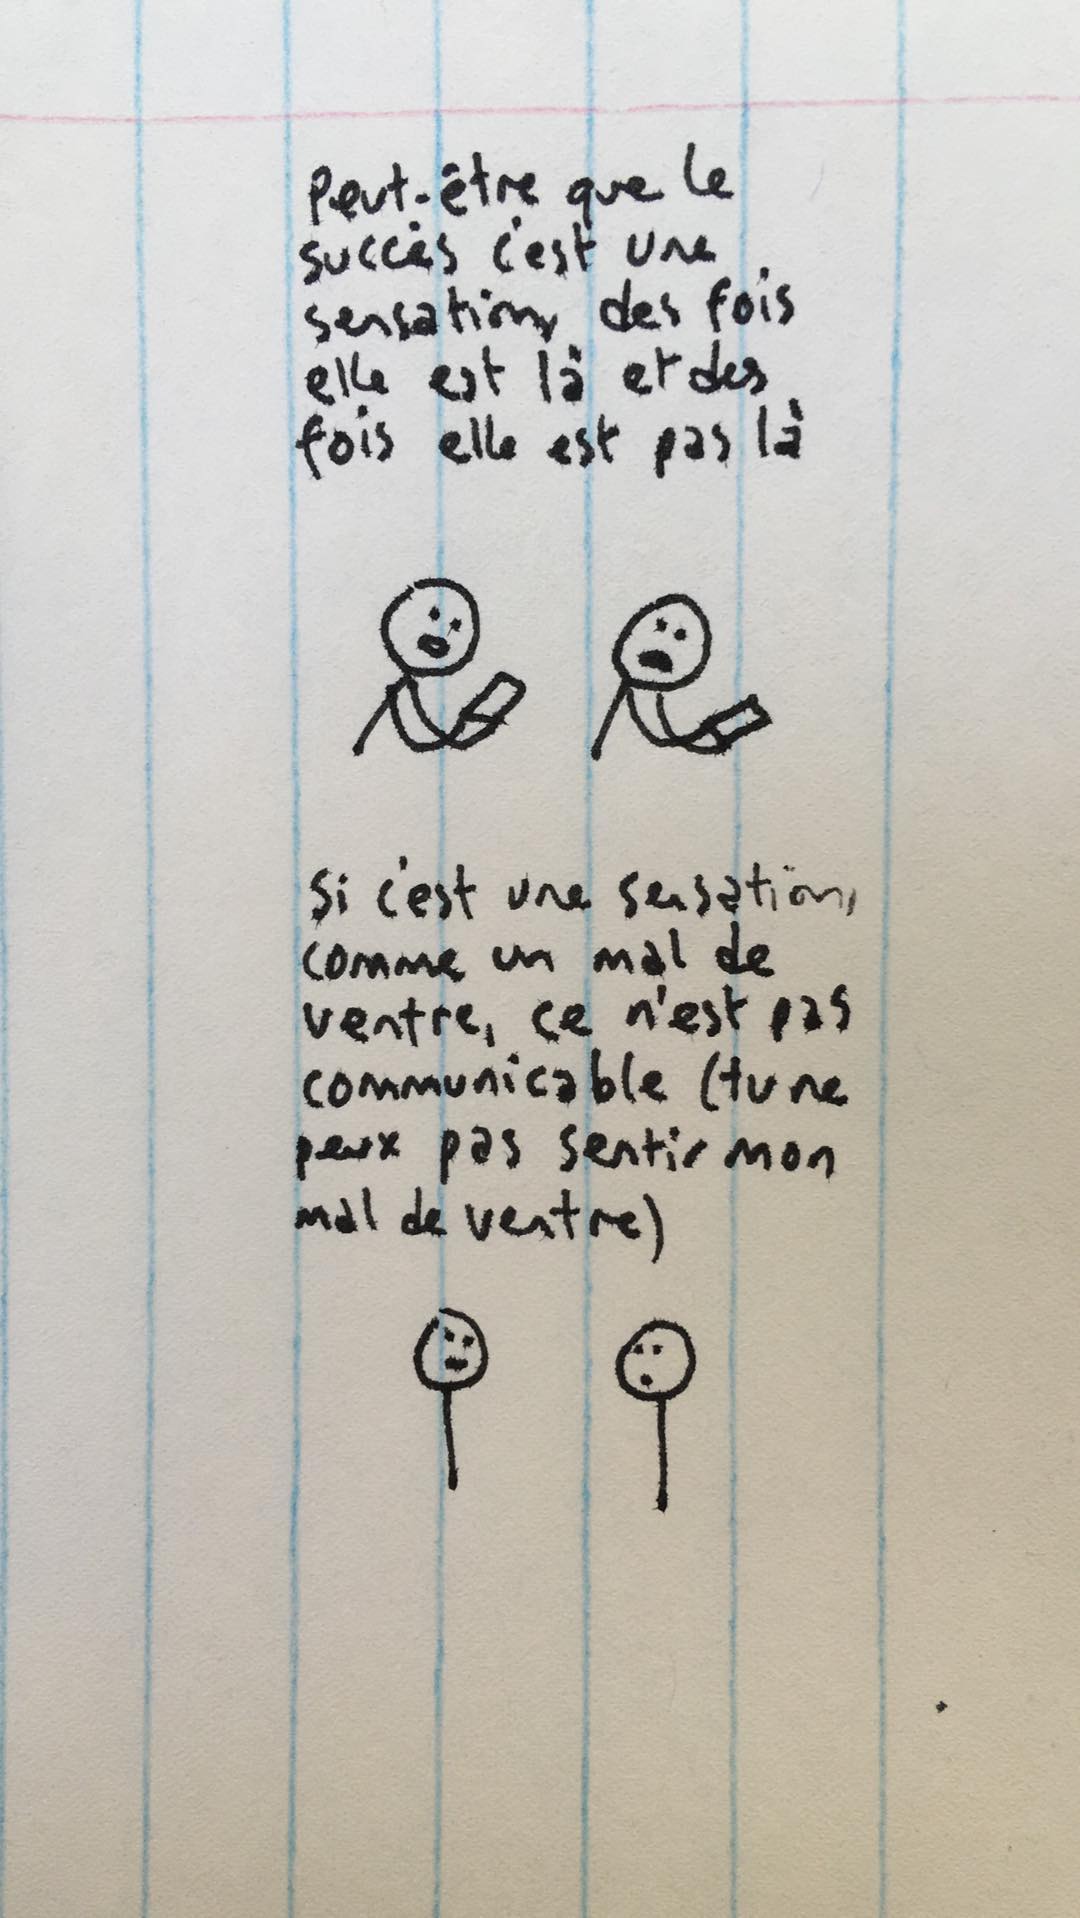 Peut-être que le
succès c'est une
sensation, des fois
elle est là et des
fois elle est pas là
Si c'est une sensation,
comme un mal de
ventre, ce n'est pas
communicable (tu ne
peux pas sentir mon
mal de ventre)